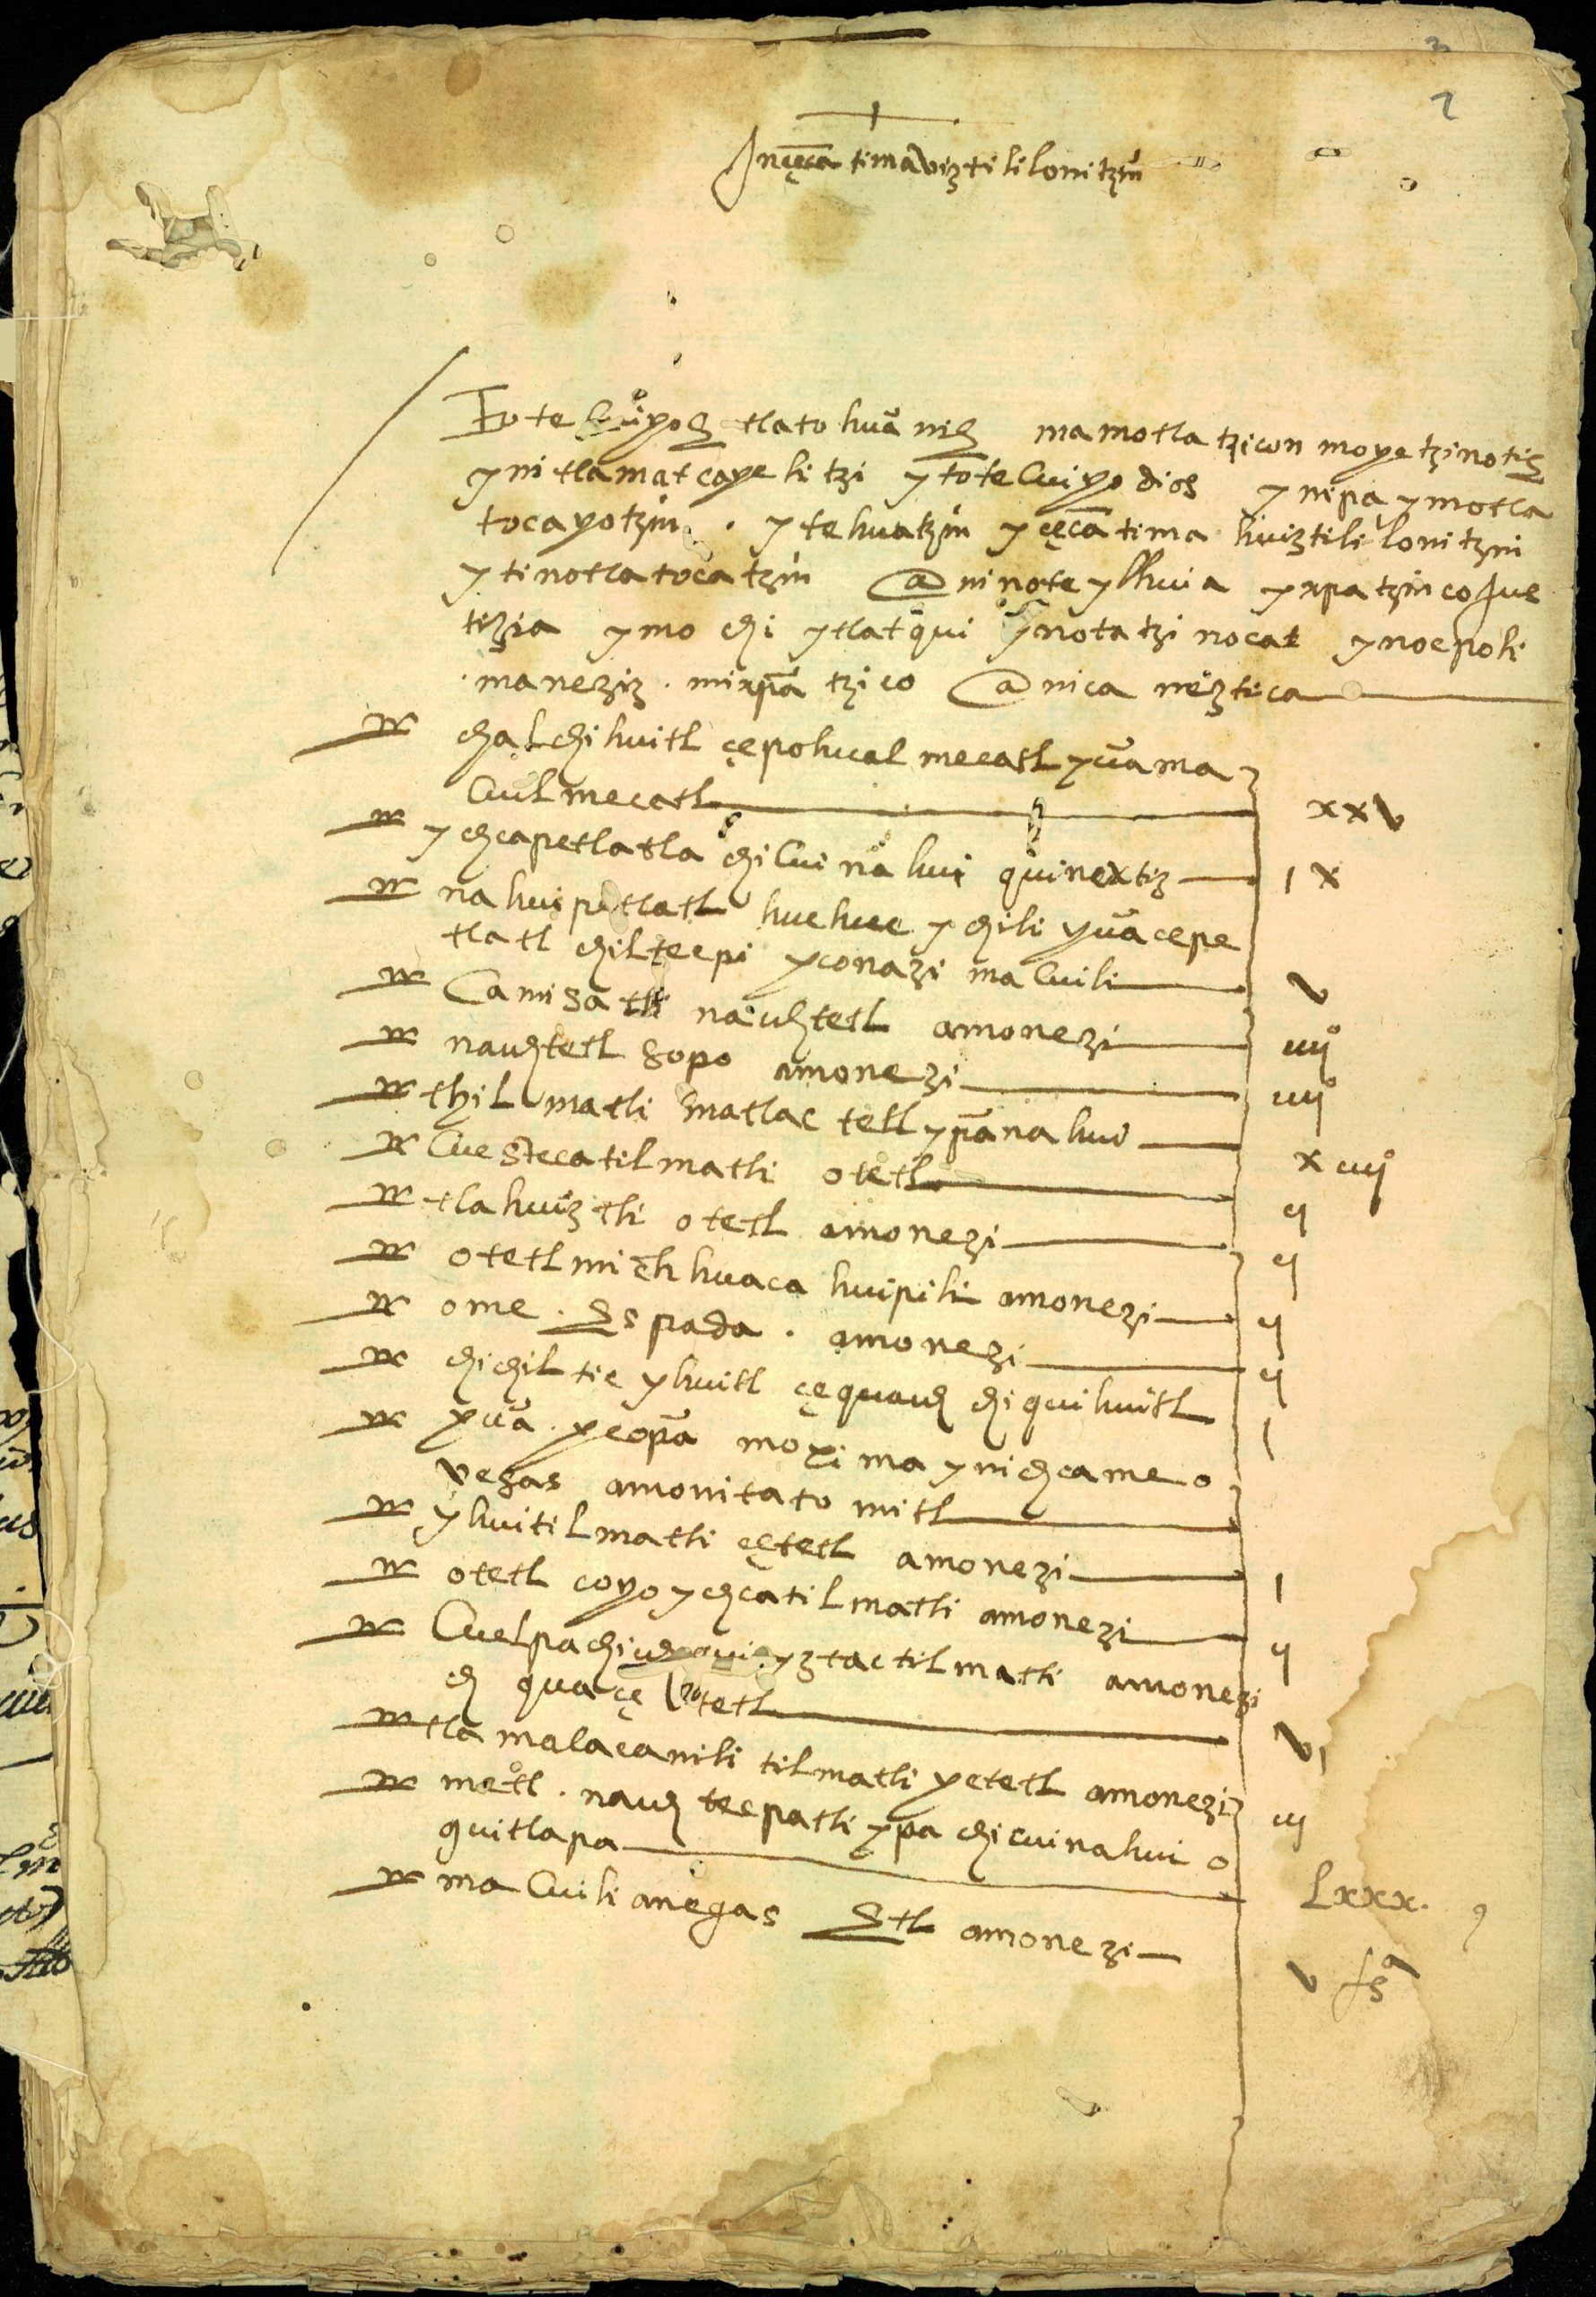 2
Jncęca timaviztililonitzin
ToteCuiyoe tlatohuanie mamotlatzicon moyetzinotie
ynitlamatcayelitzi ytoteCuiyo dios ynipa ymotla
tocayotzin . ytehuatzin ycęca timahuiztililonitzin
ytinotlatocatzin @ ninoteylhuia yxpatzinco Jus
tizia ymochi ytlatqui ynotatzi nocat ynoepoli
. maneziz . mixpa tzico @ nica neztica
chalchihuitl cępohual mecatl yua ma
Cuil mecatl xxv
ychcapetlatla chiCuinahui quinextiz ix
nahui petlatl huehue ychili yua cepe
tlatl chiltecpi yconazi maCuili v
Camisatli nauhtetl amonezi iiijº
nauhtetl sopo amonezi iiijº
thilmatli matlactetl ypanahui xiiijº
Cuestecatilmatli otetl ij
tlahuiztli otetl amonezi ij
otetl michhuaca huipili amonezi ij
ome . Espada . amonezi ij
chichiltic yhuitl cęquauh chiquihuitl i
yua . yeopa moxima ynichcame o
vezas amonitato mitl
yhuitilmatli cętetl amonezi i
otetl coyoychcatilmatli amonezi ij
Cuelpachiuhqui yztactilmatli amonezi
chquacę tetl vi
tlamalacanili tilmatli yetetl amonezi iij
metl . nauhtecpatli ypa chicuinahui o
quitlapa Lxxx. 9
maCuili anegas Etl amonezi v fsª